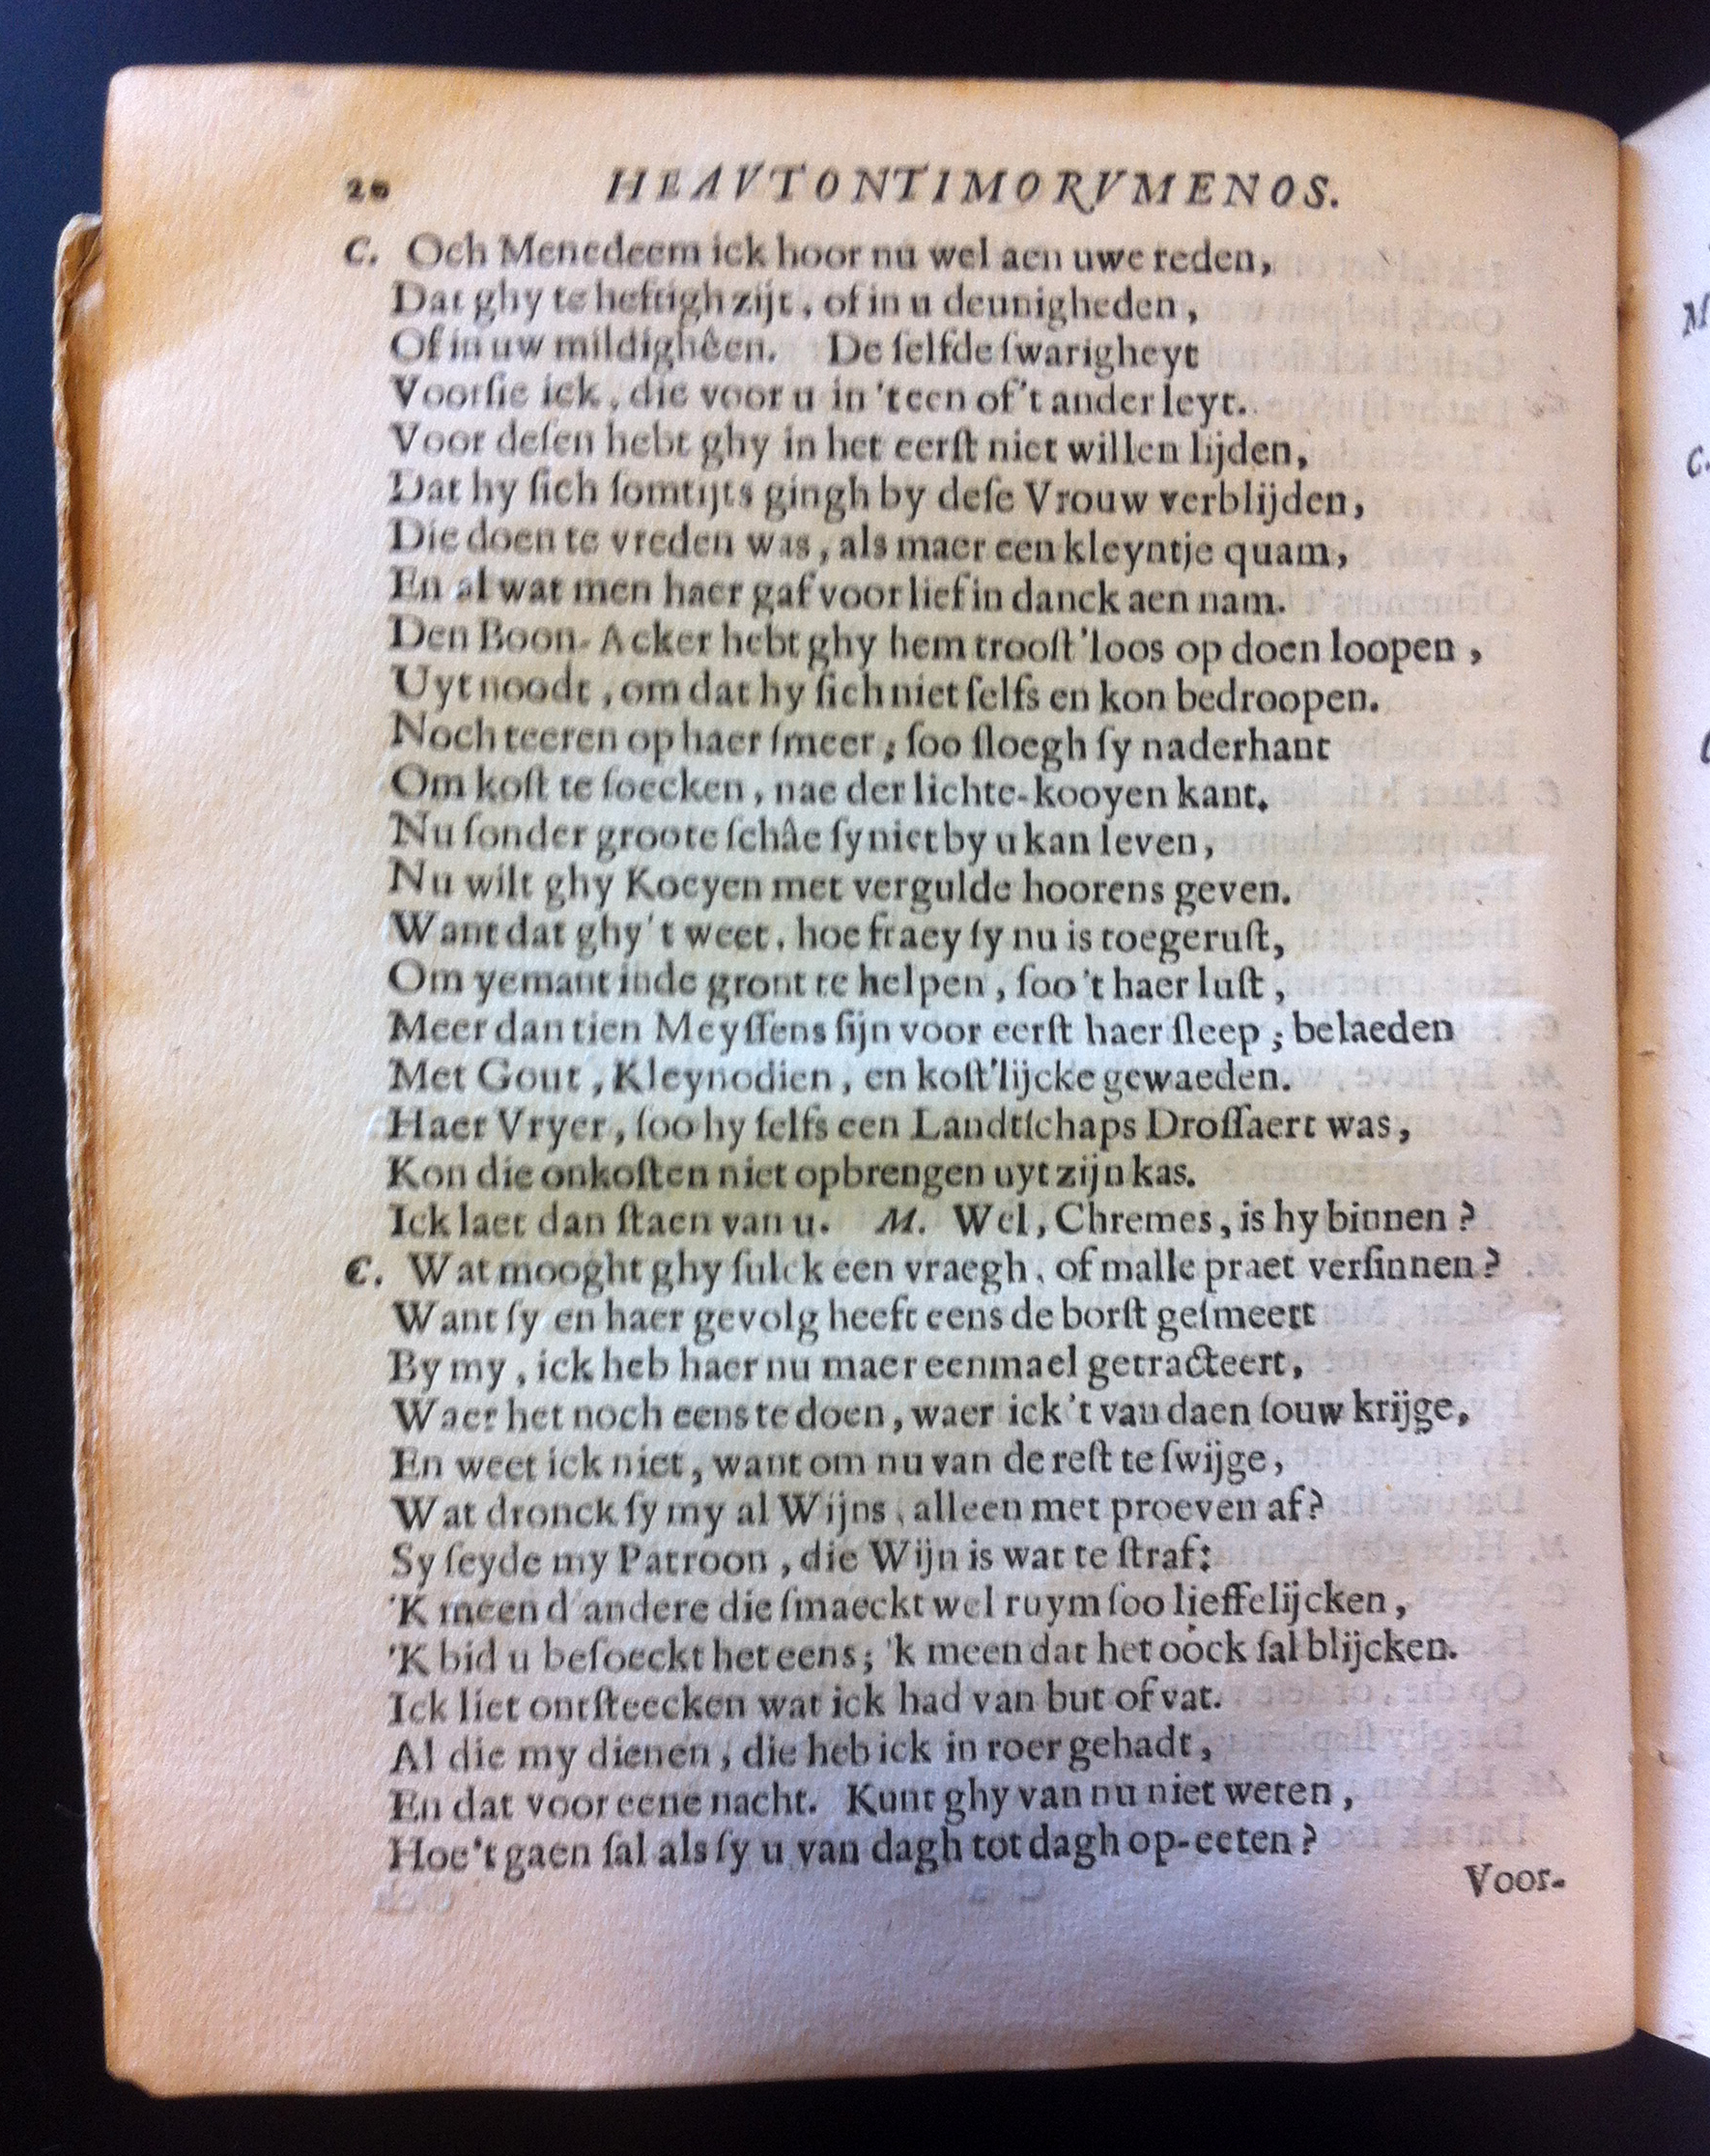 20 HEAVTONTIMORVMENOS.
C. Och Menedeem ick hoor nu wel aen uwe reden,
Dat ghy te heftigh zijt, of in u deunigheden,
Of in uw mildighêen. De ſelfde ſwarigheyt
Voorſie ick, die voor u in 't een of 't ander leyt.
Voor deſen hebt ghy in het eerſt niet willen lijden,
Dat hy ſich ſomtijts gingh by deſe Vrouw verblijden,
Die doen te vreden was, als maer een kleyntje quam,
En al wat men haer gaf voor lief in danck aen nam.
Den Boon-Acker hebt ghy hem trooſt'loos op doen loopen,
Uyt noodt, om dat hy ſich niet ſelfs en kon bedroopen.
Noch teeren op haer ſmeer; ſoo ſloegh ſy naderhant
Om koſt te ſoecken, nae der lichte-kooyen kant.
Nu ſonder groote ſchâe ſy niet by u kan leven,
Nu wilt ghy Koeyen met vergulde hoorens geven.
Want dat ghy 't weet, hoe fraey ſy nu is toegeruſt,
Om yemant inde gront te helpen, ſoo 't haer luſt,
Meer dan tien Meyſſens ſijn voor eerſt haer ſleep; belaeden
Met Gout, Kleynodien, en koſt'lijcke gewaeden.
Haer Vryer, ſoo hy ſelfs een Landtſchaps Droſſaert was,
Kon die onkoſten niet opbrengen uyt zijn kas.
Ick laet dan ſtaen van u. M. Wel, Chremes, is hy binnen?
C. Wat mooght ghy ſulck een vraegh, of malle praet verſinnen?
Want ſy en haer gevolg heeft eens de borſt geſmeert
By my, ick heb haer nu maer eenmael getracteert,
Waer het noch eens te doen, waer ick 't van daen ſouw krijge,
En weet ick niet, want om nu van de reſt te ſwijge,
Wat dronck ſy my al Wijns, alleen met proeven af?
Sy ſeyde my Patroon, die Wijn is wat te ſtraf:
'K meen d'andere die ſmaeckt wel ruym ſoo lieffelijcken,
'K bid u beſoeckt het eens; 'k meen dat het oock ſal blijcken.
Ick liet ontſteecken wat ick had van but of vat.
Al die my dienen, die heb ick in roer gehadt,
En dat voor eene nacht. Kunt ghy van nu niet weten,
Hoe 't gaen ſal als ſy u van dagh tot dagh op-eeten?
Voor-